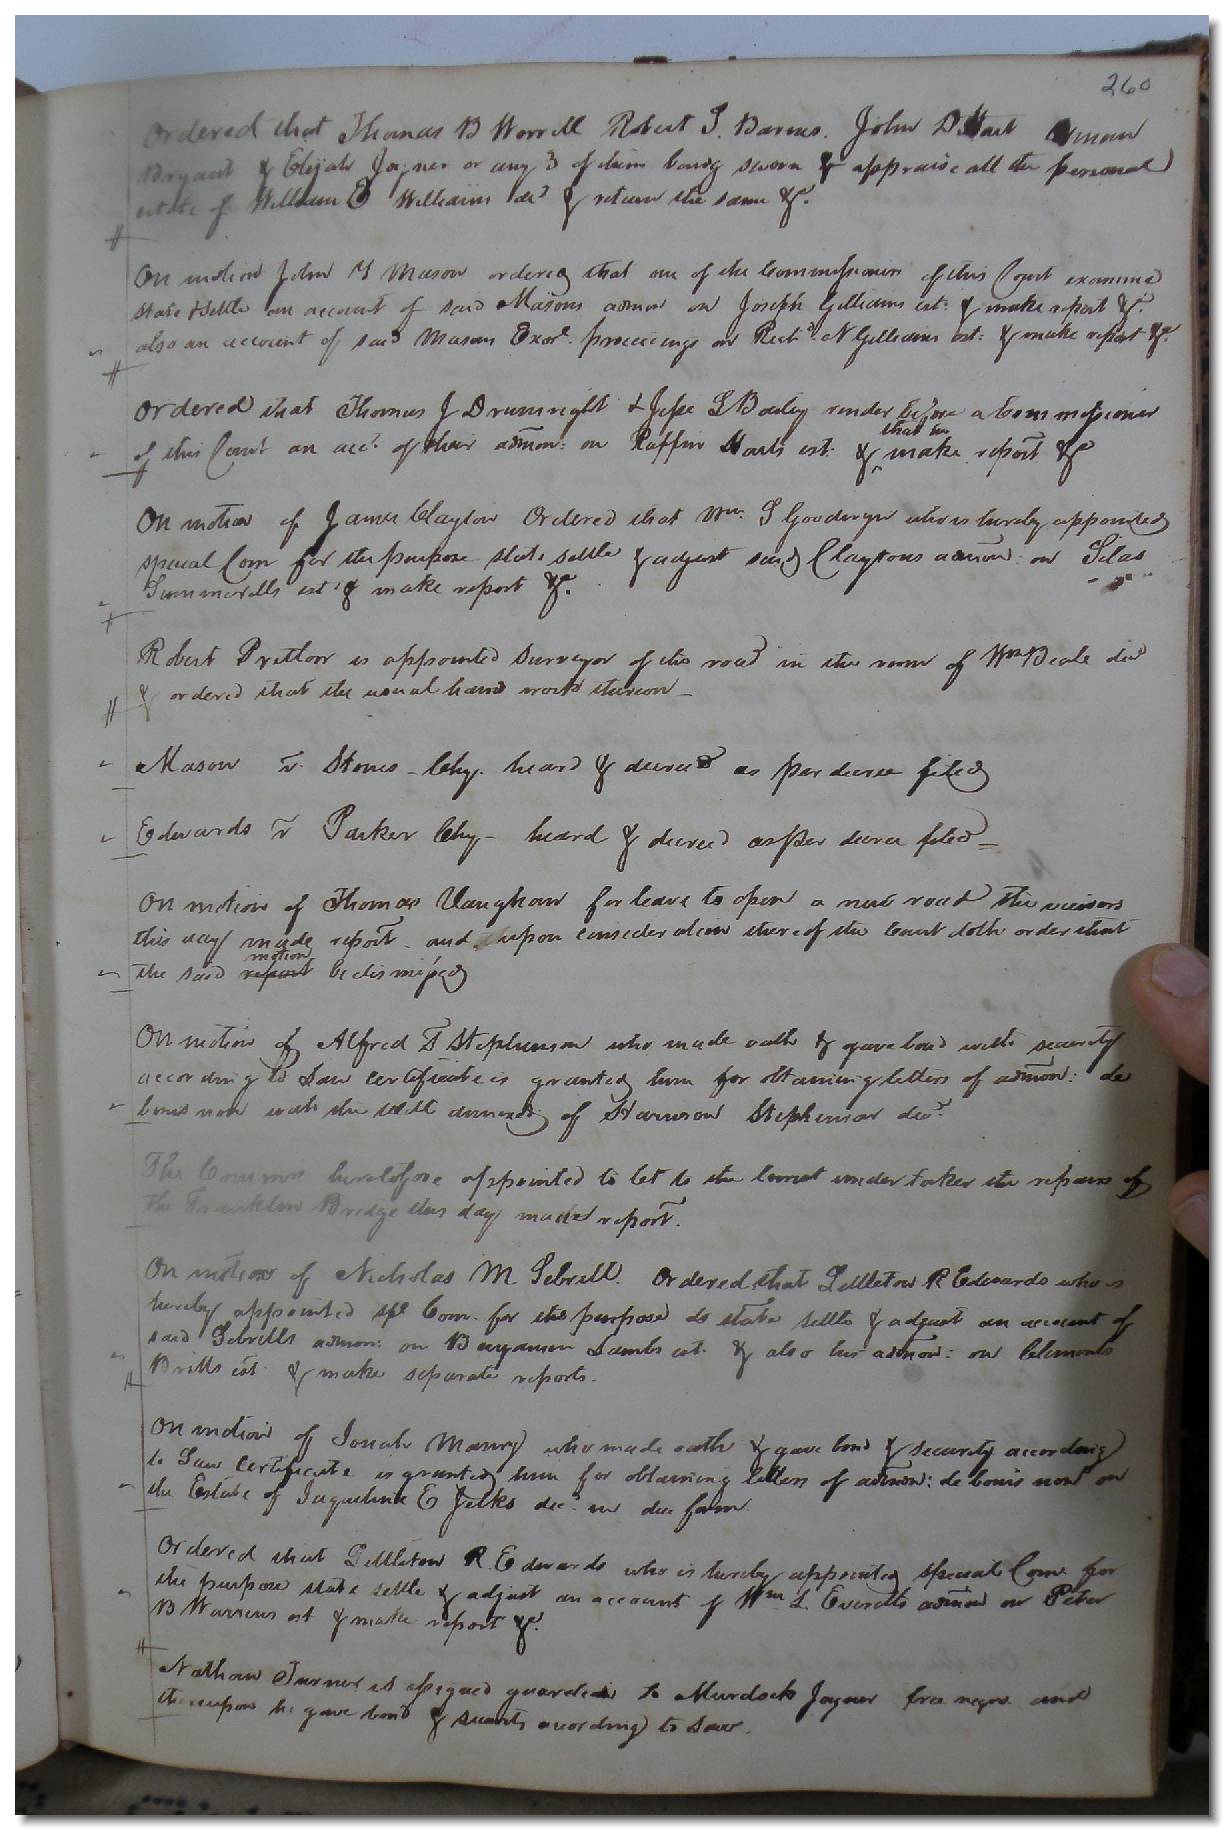 260
Ordered that Thomas B Worrell Robert S. Barnes. John D Hart
Bryant & Elijah Joyner or any 3 of them being sworn & appraise all the personal
estate of William E Williams decd & return the same &c.
On motion John Y Mason ordered that one of the Commissioners of this Court examine
state & settle an account of said Masons admon on Joseph Gilliams est: & make report &c.
also an account of said Mason Exor. proceedings on Richd. N Gilliams est: & make report &c.
Ordered that Thomas J Drumright & Jesse S Bailey render before a Commissioner
of this Court an acct. of their admon: on Ruffin Harts est. & make report &c
On motion of James Clayton Ordered that Wm. S Goodwyn who is hereby appointed
special Com for the purpose state settle & adjust said Claytons admon: on Silas
Summerells est & make report &c.
Robert Pretlow is appointed surveyor of the road in the room of Wm Beale decd
& ordered that the usual hands work thereon -
Mason vs. Stones - Chy. heard & decreed as per decree filed
Edwards vs Parker Chy - heard & decreed as per decree filed -
On motion of Thomas Vaughan for leave to open a new road the viewers
this day made report and upon consideration thereof the Court doth order that
motion
the said report be dismissed
On motion of Alfred T Stephenson who made oath & gave bond with security
according to Law certificate is granted him for obtaining letters of admon: de
bonis non with the will annexed of Harrison Stephenson decd.
The Commrs heretofore appointed to let to the lowest undertaker the repairs of
the Franklin Bridge this day made report.
On motion of Nicholas M Sebrell. Ordered that Littleton R Edwards who is
hereby appointed spl Com. for the purpose do state settle & adjust an account of
said Sebrells admon: on Benjamin Lambs est. & also his admon: on Clements
Britts est. & make separate reports.
On motion of Josiah Maury who made oath & gave bond & security according
to Law certificate is granted him for obtaining letters of admon: de bonis non on
the Estate of Jaqueline E Jelks decd. in due form
Ordered that Littleton R Edwards who is hereby appointed special Com. for
the purpose state settle & adjust an account of Wm. L. Everetts admon on Peter
B Warrens est & make report &c.
Nathan Turner is assigned guardian to Murdock Joyner free negro and
thereupon he gave bond & security according to Law.